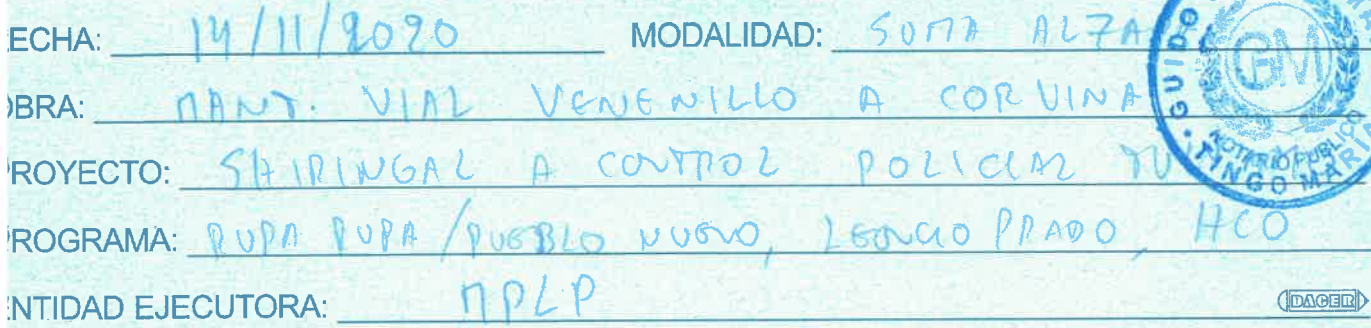 ECHA: 14/11/2020 MODALIDAD: SUMA ALZA
OBRA: MANT. VIAL VENENILLO A CORVINA
PROYECTO: SHIRINGAL A CONTROL POLICIAL TU
PROGRAMA: RUPA RUPA / PUEBLO NUEVO, LEONCIO PRADO, HCO
ENTIDAD EJECUTORA: MPLP
GUIDO
GM
NOTARIO PUBLICO
TINGO MARI
DACER